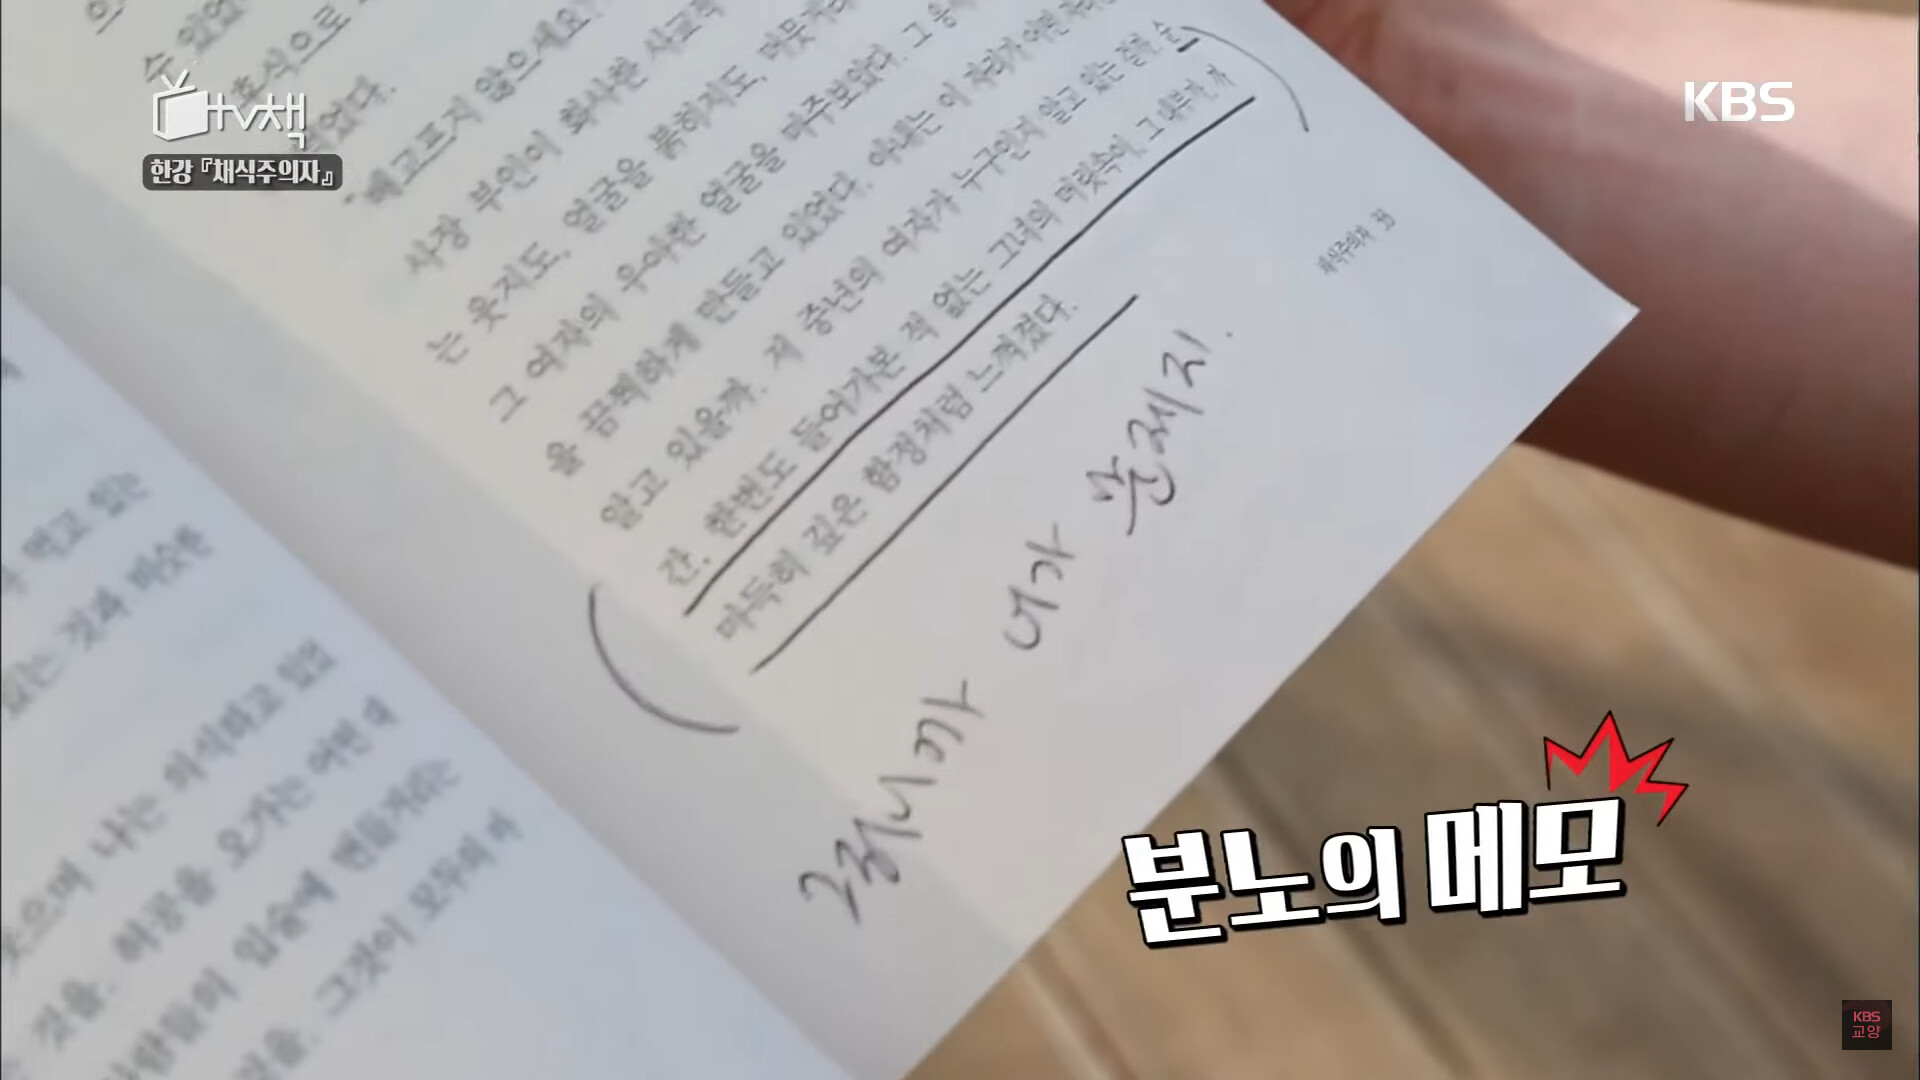 tv책
한강『채식주의자』
KBS
수 있었
호식으로
었다.
"배고프지 않으세요?
사장 부인이 화사한 사교적
는 웃지도, 얼굴을 붉히지도, 머뭇거리
그 여자의 우아한 얼굴을 마주보았다. 그 응시
을 끔찍하게 만들고 있었다. 아내는 이 자리가 어떤 자리
알고 있을까. 저 중년의 여자가 누구인지 알고 있는 걸까. 순
간, 한번도 들어가본 적 없는 그녀의 머릿속이, 그 내부가, 까
마득히 깊은 함정처럼 느껴졌다.
채식주의자 33
그러니까 네가 문제지.
먹고 있는
있는 것과 비슷한
웃으며 나는 의식하고 있었
것을. 허공을 오가는 어떤 말
사람들의 입술에 번들거리는
것을. 그것이 모두의 마
분노의 메모
KBS
교양